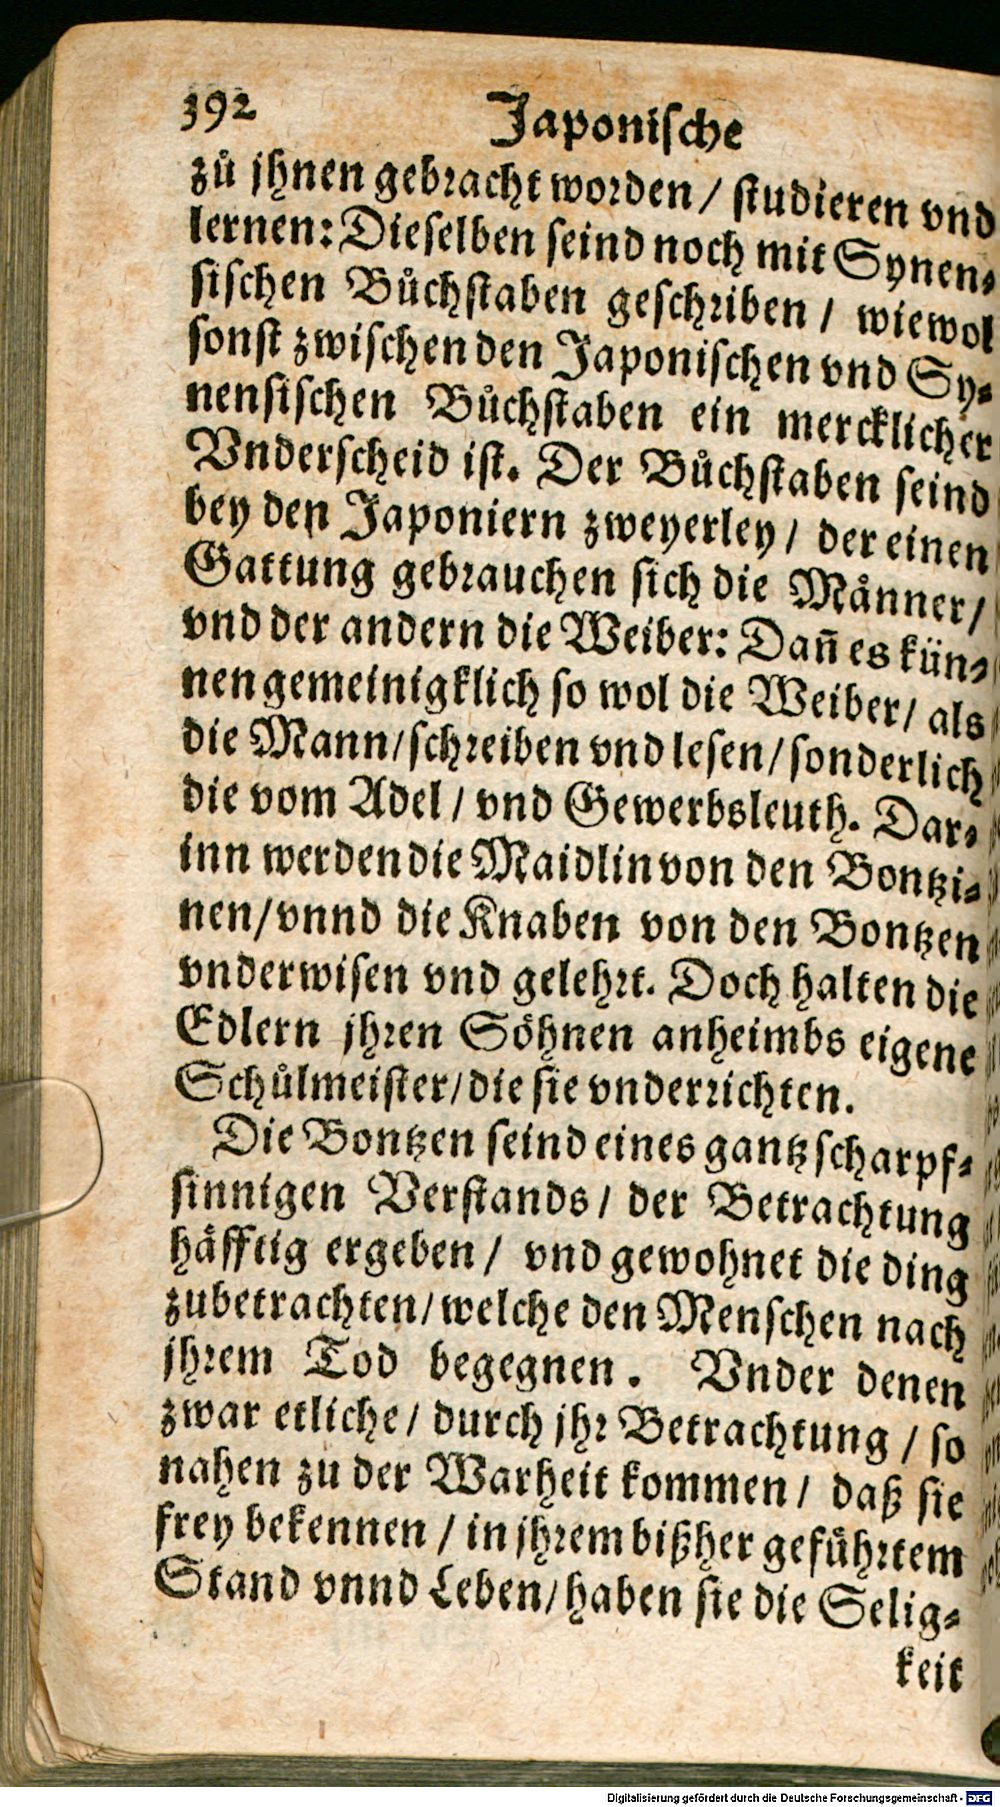 392 Japonische
zů jhnen gebracht worden / studieren vnd
lernen: Dieselben seind noch mit Synen⸗
sischen Bůchstaben geschriben / wiewol
sonst zwischen den Japonischen vnd Sy⸗
nensischen Bůchstaben ein mercklicher
Vnderscheid ist. Der Bůchstaben seind
bey den Japoniern zweyerley / der einen
Gattung gebrauchen sich die Måñner /
vnd der andern die Weiber: Dañ es kün⸗
nen gemeinigklich so wol die Weiber / als
die Mann / schreiben vnd lesen / sonderlich
die vom Adel / vnd Gewerbsleuth. Dar⸗
inn werden die Maidlin von den Bontzi⸗
nen / vnnd die Knaben von den Bontzen
vnderwisen vnd gelehrt. Doch halten die
Edlern jhren Söhnen anheimbs eigene
Schůlmeister / die sie vnderrichten.
Die Bontzen seind eines gantz scharpf⸗
sinnigen Verstands / der Betrachtung
häfftig ergeben / vnd gewohnet die ding
zubetrachten / welche den Menschen nach
jhrem Tod begegnen. Vnder denen
zwar etliche / durch jhr Betrachtung / so
nahen zu der Warheit kommen / daß sie
frey bekennen / in jhrem bißher gefůhrtem
Stand vnnd Leben / haben sie die Selig⸗
keit
Digitalisierung gefördert durch die Deutsche Forschungsgemeinschaft - DFG